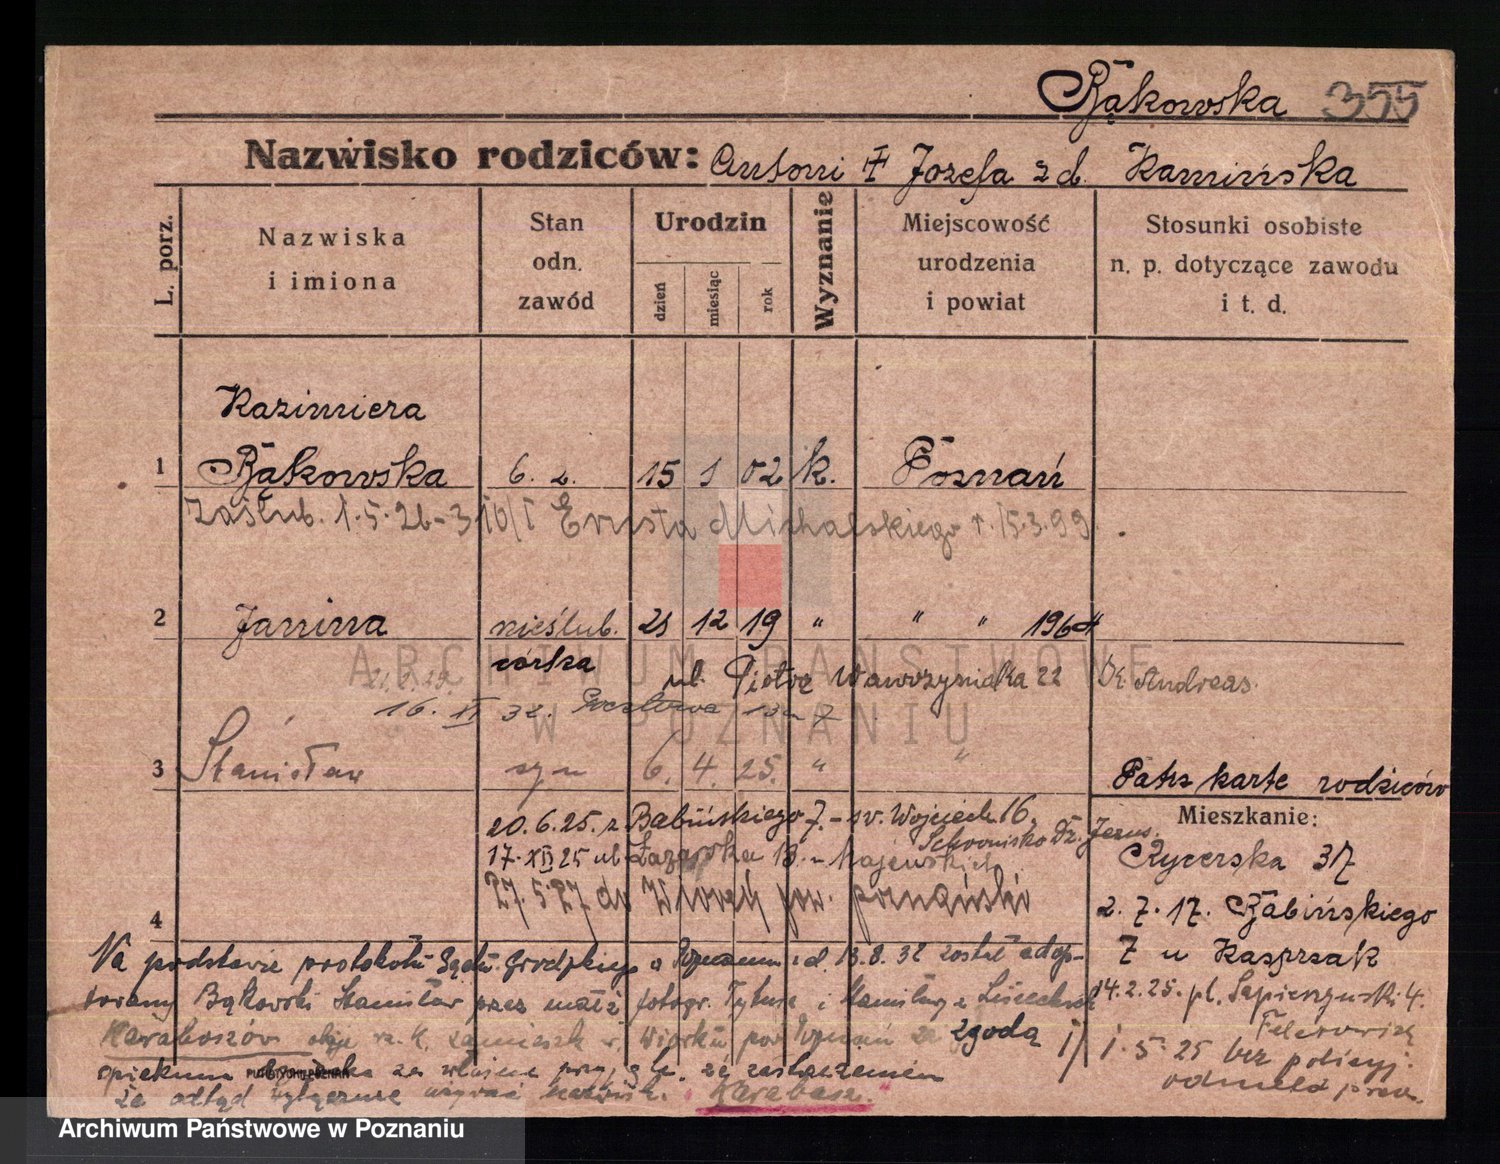 Bąkowska 355
Nazwisko rodziców: Antoni † Jozefa z d. Kamińska
L. porz.
Nazwiska
i imiona
Stan
odn.
zawód
Urodzin
dzień
miesiąc
rok
Wyznanie
Miejscowość
urodzenia
i powiat
Stosunki osobiste
n. p. dotyczące zawodu
i t. d.
Kazimiera
1 Bąkowska 6. 2. 15 1 02 k. Poznań
zaślub. 1.5.26 - 310/I Ernsta Michalskiego r. 15.3.99
2 Janina nieślub. 21 12 19 " " " 1964
córka ul. Piotra Wawrzyniaka 22 Dr Andreas.
16. II 32. 13 - 7
3 Stanisław syn 6. 4. 25. " "
Patrz karte rodziców
20.6.25. z Babińskiego 7. - św. Wojciech 16.
Schronisko Dz. Jezus.
17. XII 25 ul Łazarska 13. - Majewskich
27.5.27 do Wiorek pow. poznański
4
Mieszkanie:
Rycerska 37
2. 7. 17. Babińskiego
7 u Kasprzak
14.2.25. pl. Sapieżyński 4.
1. 5. 25 bez policyj.
odmeld
Na podstawie protokołu Sądu Grodzkiego w Poznaniu z d. 13.8.32 został adop-
towany Bąkowski Stanisław przez małż. fotogr. Tytusa i Stanisławę z
Karaboszów zamieszk w Wiorku pow Poznań za zgodą
opiekuna za własne z zastrzeżeniem
że odtąd wyłącznie używać nazwisk. Karabasz.
ARCHIWUM PAŃSTWOWE
W POZNANIU
Archiwum Państwowe w Poznaniu